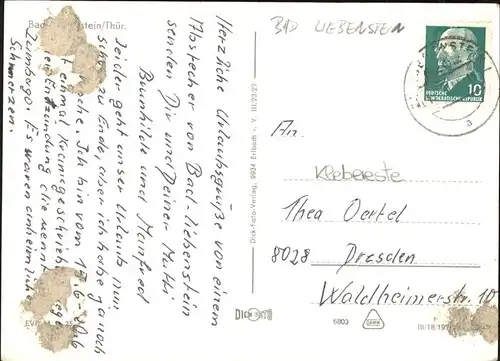 Bad Liebenstein/Thür.
BAD LIEBENSTEIN
Herzliche Urlaubsgrüße von einem
Abstecher von Bad-Liebenstein
senden Dir und Deiner Mutti
Brunhilde und Manfred
Leider geht unser Urlaub nun
schon zu Ende, aber ich habe ja noch
Woche. Ich bin vom 15.6-20.6
einmal krankgeschrieben
Entzündung die nennt
Lumbago. Es waren unheimliche
Schmerzen.
Dick-Foto-Verlag, 9934 Erlbach i. V. III/23/23
DEUTSCHE
DEMOKRATISCHE REPUBLIK
10
a
An
Klebereste
Thea Oertel
8028 Dresden
Waldheimerstr. 10
DICK
6803
EVP
III/18/197